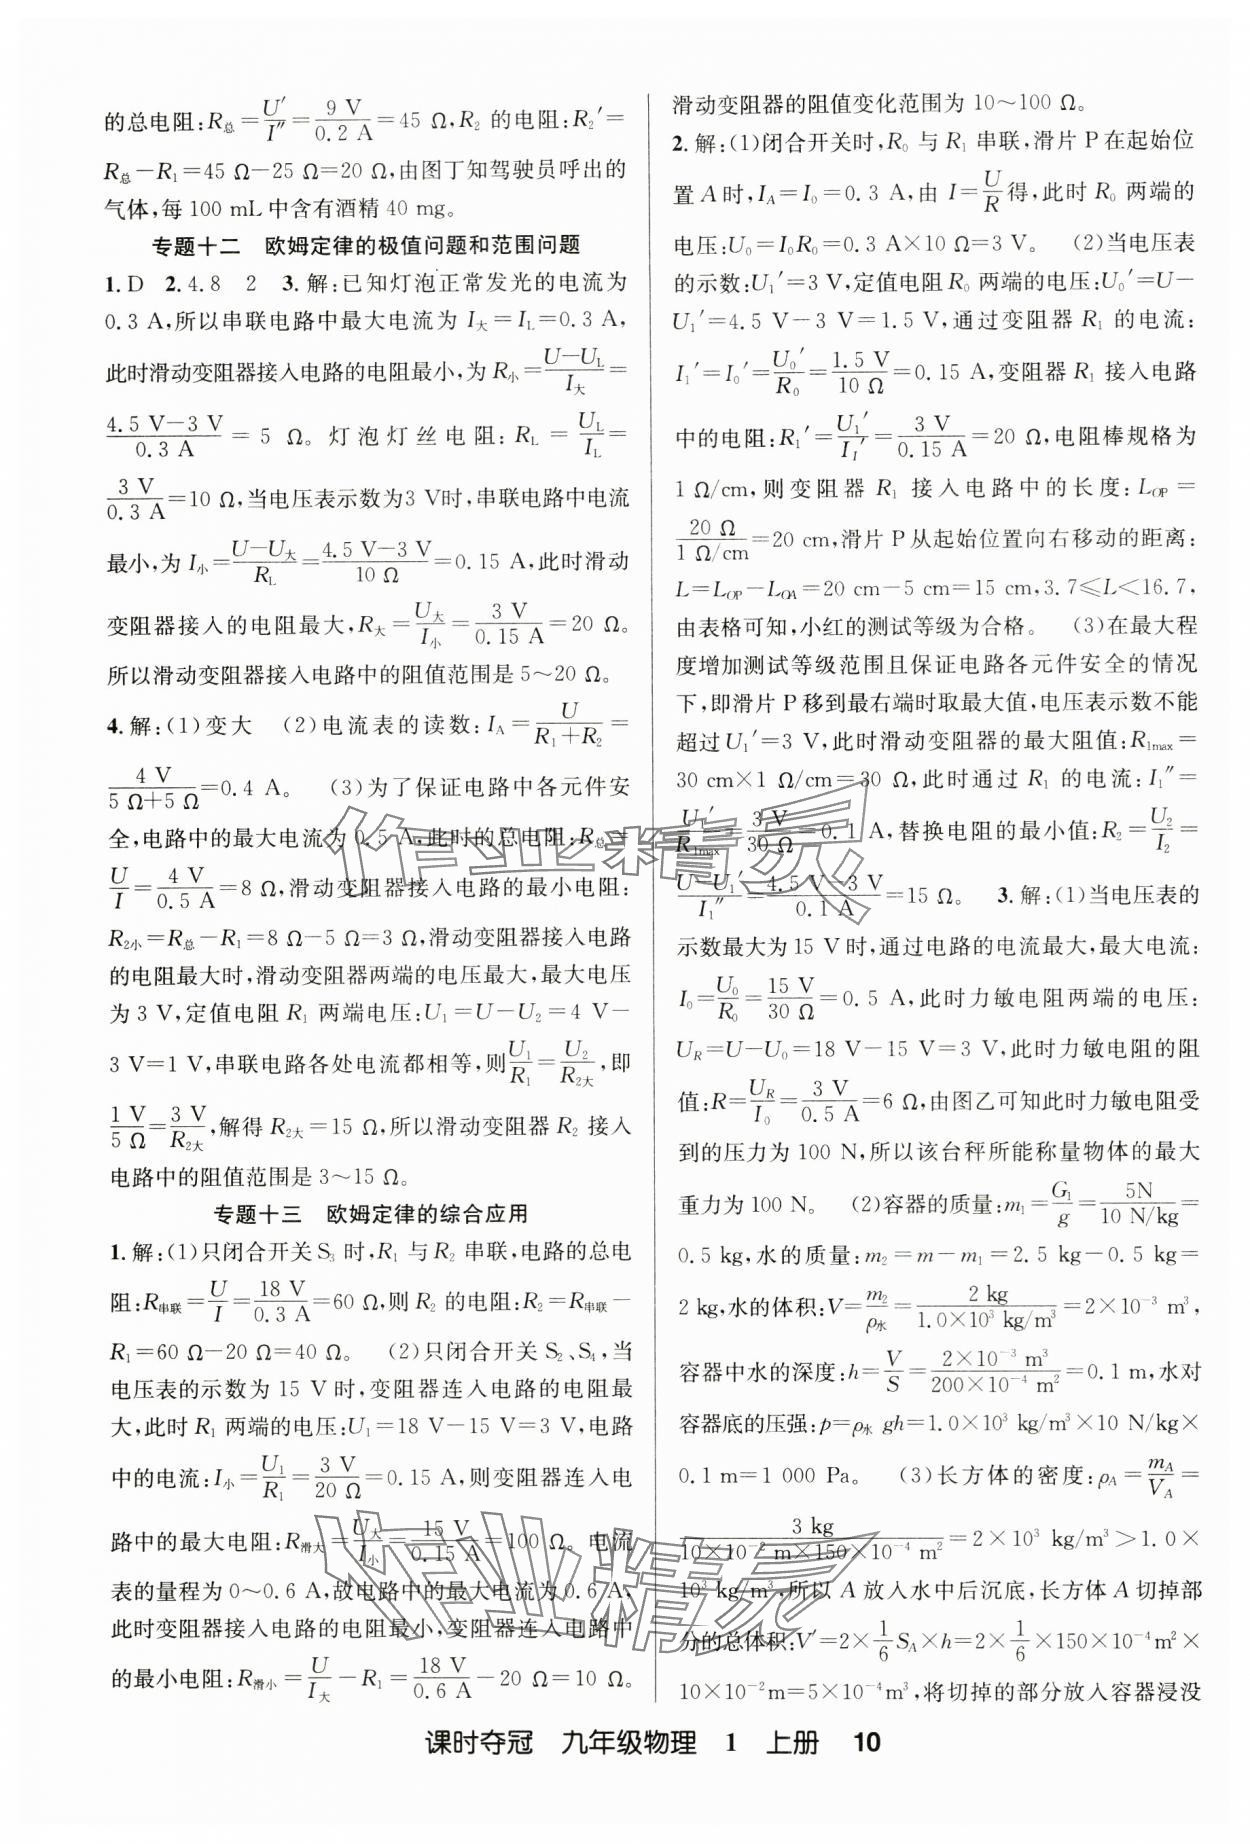 的总电阻:R总=U′/I″=9 V/0.2 A=45 Ω,R₂ 的电阻:R₂′=
R总−R₁=45 Ω−25 Ω=20 Ω,由图丁知驾驶员呼出的
气体,每 100 mL 中含有酒精 40 mg。
专题十二 欧姆定律的极值问题和范围问题
1.D 2.4.8 2 3.解:已知灯泡正常发光的电流为
0.3 A,所以串联电路中最大电流为 I大=I_L=0.3 A,
此时滑动变阻器接入电路的电阻最小,为 R小=(U−U_L)/I大=
(4.5 V−3 V)/0.3 A=5 Ω。灯泡灯丝电阻:R_L=U_L/I_L=
3 V/0.3 A=10 Ω,当电压表示数为3 V时,串联电路中电流
最小,为 I小=(U−U大)/R_L=(4.5 V−3 V)/10 Ω=0.15 A,此时滑动
变阻器接入的电阻最大,R大=U大/I小=3 V/0.15 A=20 Ω。
所以滑动变阻器接入电路中的阻值范围是 5~20 Ω。
4.解:(1)变大 (2)电流表的读数:I_A=U/(R₁+R₂)=
4 V/(5 Ω+5 Ω)=0.4 A。 (3)为了保证电路中各元件安
全,电路中的最大电流为 0.5 A,此时的总电阻:R总=
U/I=4 V/0.5 A=8 Ω,滑动变阻器接入电路的最小电阻:
R₂小=R总−R₁=8 Ω−5 Ω=3 Ω,滑动变阻器接入电路
的电阻最大时,滑动变阻器两端的电压最大,最大电压
为 3 V,定值电阻 R₁ 两端电压:U₁=U−U₂=4 V−
3 V=1 V,串联电路各处电流都相等,则U₁/R₁=U₂/R₂大,即
1 V/5 Ω=3 V/R₂大,解得 R₂大=15 Ω,所以滑动变阻器 R₂ 接入
电路中的阻值范围是 3~15 Ω。
专题十三 欧姆定律的综合应用
1.解:(1)只闭合开关 S₃ 时,R₁ 与 R₂ 串联,电路的总电
阻:R串联=U/I=18 V/0.3 A=60 Ω,则 R₂ 的电阻:R₂=R串联−
R₁=60 Ω−20 Ω=40 Ω。 (2)只闭合开关 S₂、S₄,当
电压表的示数为 15 V 时,变阻器连入电路的电阻最
大,此时 R₁ 两端的电压:U₁=18 V−15 V=3 V,电路
中的电流:I小=U₁/R₁=3 V/20 Ω=0.15 A,则变阻器连入电
路中的最大电阻:R滑大=U大/I小=15 V/0.15 A=100 Ω。电流
表的量程为 0~0.6 A,故电路中的最大电流为 0.6 A,
此时变阻器接入电路的电阻最小,变阻器连入电路中
的最小电阻:R滑小=U/I大−R₁=18 V/0.6 A−20 Ω=10 Ω。
滑动变阻器的阻值变化范围为 10~100 Ω。
2.解:(1)闭合开关时,R₀ 与 R₁ 串联,滑片 P 在起始位
置 A 时,I_A=I₀=0.3 A,由 I=U/R得,此时 R₀ 两端的
电压:U₀=I₀R₀=0.3 A×10 Ω=3 V。 (2)当电压表
的示数:U₁′=3 V,定值电阻 R₀ 两端的电压:U₀′=U−
U₁′=4.5 V−3 V=1.5 V,通过变阻器 R₁ 的电流:
I₁′=I₀′=U₀′/R₀=1.5 V/10 Ω=0.15 A,变阻器 R₁ 接入电路
中的电阻:R₁′=U₁′/I₁′=3 V/0.15 A=20 Ω,电阻棒规格为
1 Ω/cm,则变阻器 R₁ 接入电路中的长度:L_OP=
20 Ω/(1 Ω/cm)=20 cm,滑片 P 从起始位置向右移动的距离:
L=L_OP−L_OA=20 cm−5 cm=15 cm,3.7≤L<16.7,
由表格可知,小红的测试等级为合格。 (3)在最大程
度增加测试等级范围且保证电路各元件安全的情况
下,即滑片 P 移到最右端时取最大值,电压表示数不能
超过 U₁′=3 V,此时滑动变阻器的最大阻值:R₁max=
30 cm×1 Ω/cm=30 Ω,此时通过 R₁ 的电流:I₁″=
U₁′/R₁max=3 V/30 Ω=0.1 A,替换电阻的最小值:R₂=U₂/I₂=
(U−U₁′)/I₁″=(4.5 V−3 V)/0.1 A=15 Ω。 3.解:(1)当电压表的
示数最大为 15 V 时,通过电路的电流最大,最大电流:
I₀=U₀/R₀=15 V/30 Ω=0.5 A,此时力敏电阻两端的电压:
U_R=U−U₀=18 V−15 V=3 V,此时力敏电阻的阻
值:R=U_R/I₀=3 V/0.5 A=6 Ω,由图乙可知此时力敏电阻受
到的压力为 100 N,所以该台秤所能称量物体的最大
重力为 100 N。 (2)容器的质量:m₁=G₁/g=5N/(10 N/kg)=
0.5 kg,水的质量:m₂=m−m₁=2.5 kg−0.5 kg=
2 kg,水的体积:V=m₂/ρ水=2 kg/(1.0×10³ kg/m³)=2×10⁻³ m³,
容器中水的深度:h=V/S=(2×10⁻³ m³)/(200×10⁻⁴ m²)=0.1 m,水对
容器底的压强:p=ρ水 gh=1.0×10³ kg/m³×10 N/kg×
0.1 m=1 000 Pa。 (3)长方体的密度:ρ_A=m_A/V_A=
3 kg/(10×10⁻² m×150×10⁻⁴ m²)=2×10³ kg/m³>1.0×
10³ kg/m³,所以 A 放入水中后沉底,长方体 A 切掉部
分的总体积:V′=2×1/6 S_A×h=2×1/6×150×10⁻⁴m²×
10×10⁻²m=5×10⁻⁴m³,将切掉的部分放入容器浸没
作业精灵
作业精灵
课时夺冠 九年级物理 1 上册 10